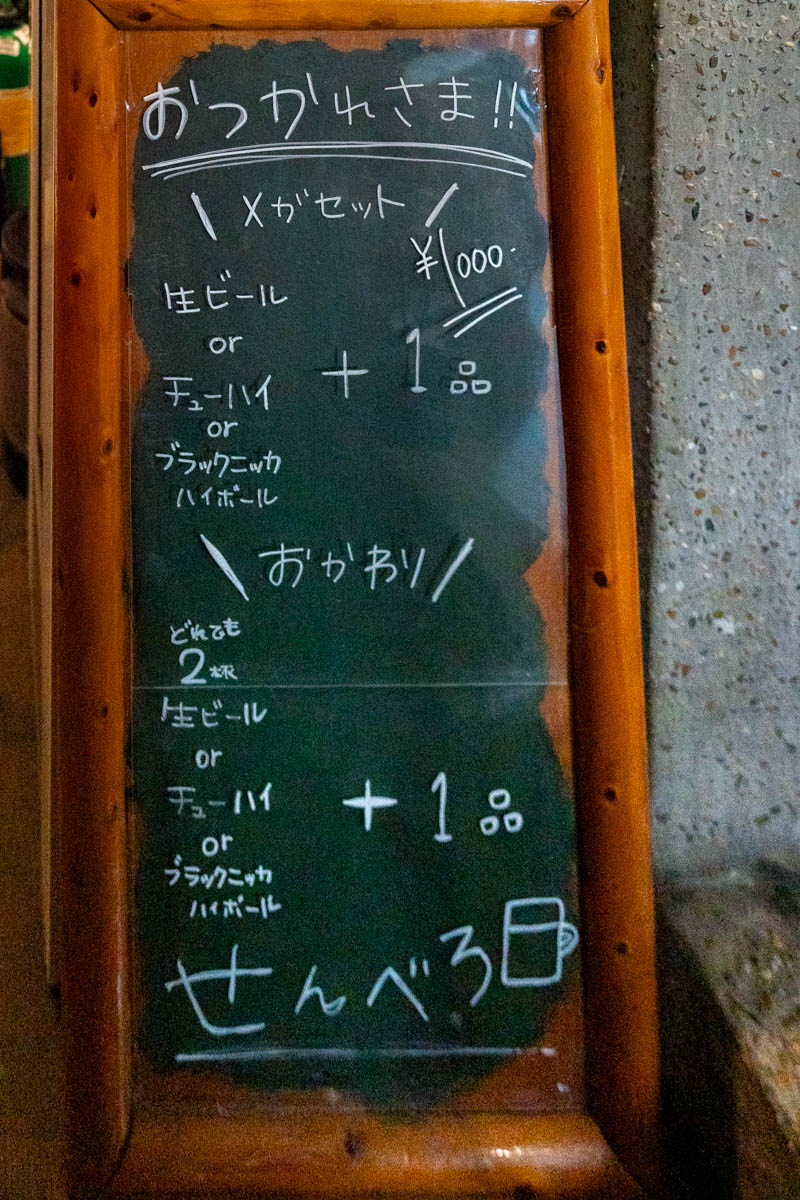 おつかれさま!!
\ メガセット /
¥1000.
生ビール
or
チューハイ
or
ブラックニッカ
ハイボール
+ 1品
\ おかわり /
どれでも
2杯
生ビール
or
チューハイ
or
ブラックニッカ
ハイボール
+ 1品
せんべろ